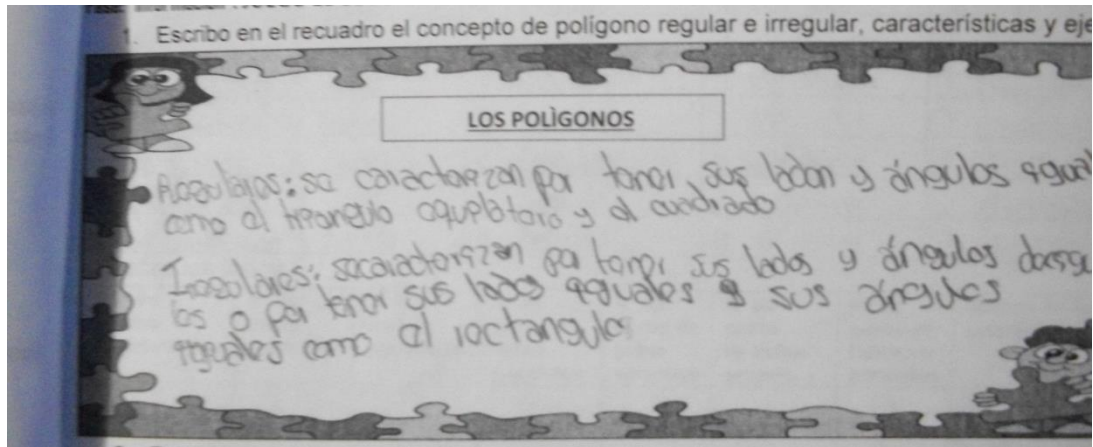 1. Escribo en el recuadro el concepto de polígono regular e irregular, características y eje
LOS POLÌGONOS
se caracterizan por tener sus lados y ángulos igual
como el y el cuadrado
Iregolares: secaracterizan por tener sus lados y ángulos desig
los o por tener sus lados iguales y sus ángulos
como el rectangulo